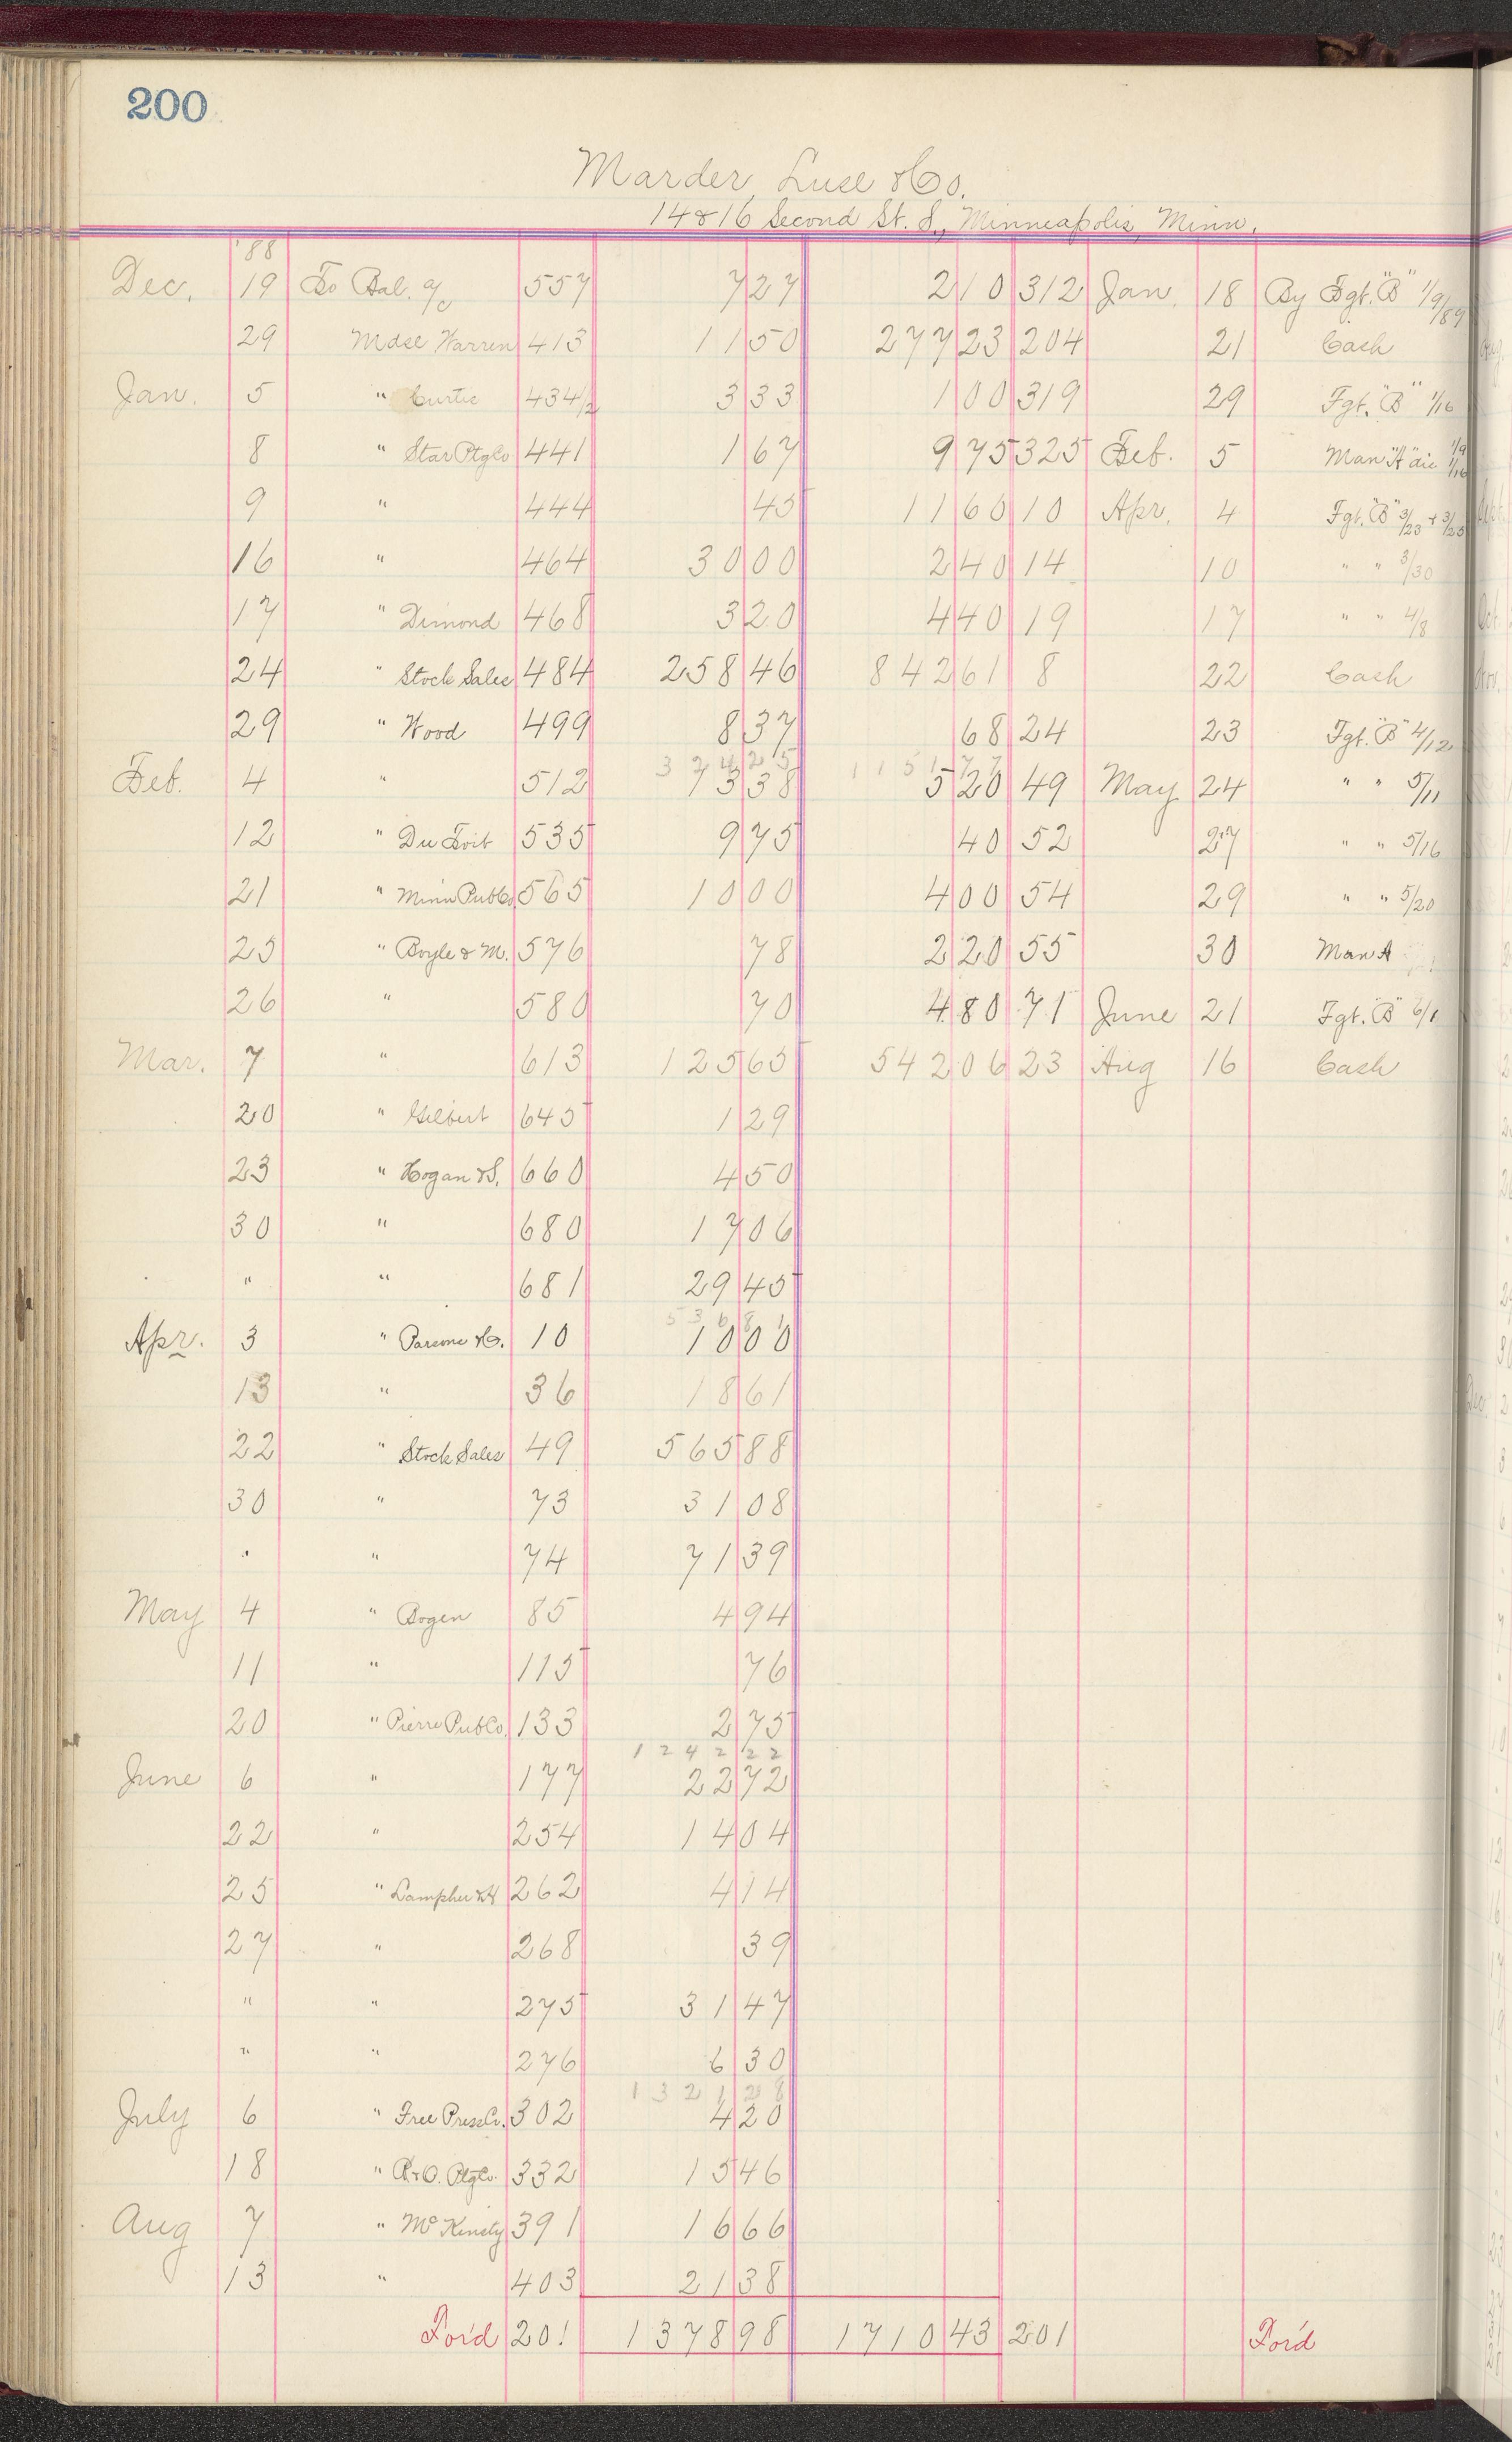 200
Marder, Luse & Co.
14 & 16 Second St. S., Minneapolis, Minn.
'88
Dec. 19 To Bal. a/c 557 7 27 2 10 312 Jan. 18 By Fgt. "B" 1/9/89
29 Mdse Warren 413 11 50 277 23 204 21 Cash
Jan. 5 " Curtis 434/2 3 33 1 00 319 29 Fgt. "B" 1/16
8 " Star Ptg Co 441 1 67 9 75 325 Feb. 5 Man "A" die 1/9 1/16
9 " 444 45 11 60 10 Apr. 4 Fgt. "B" 3/23 + 3/25
16 " 464 30 00 2 40 14 10 " " 3/30
17 " Dimond 468 3 20 4 40 19 17 " " 4/8
24 " Stock Sales 484 258 46 842 61 8 22 Cash
29 " Wood 499 8 37 68 24 23 Fgt. "B" 4/12
3 2 4 2 5 1 1 5 1 7 7
Feb. 4 " 512 7 3 38 5 20 49 May 24 " " 5/11
12 " Du Toit 535 9 75 40 52 27 " " 5/16
21 " Minn Pub Co 565 10 00 4 00 54 29 " " 5/20
25 " Boyle & M. 576 78 2 20 55 30 Man A
26 " 580 70 4 80 71 June 21 Fgt. "B" 6/1
Mar. 7 " 613 125 65 542 06 23 Aug 16 Cash
20 " Gilbert 645 1 29
23 " Hogan & S. 660 4 50
30 " 680 17 06
" " 681 29 45
5 3 6 8 1
Apr. 3 " Parsons & Co. 10 10 00
13 " 36 18 61
22 " Stock Sales 49 565 88
30 " 73 31 08
" " 74 71 39
May 4 " Bogen 85 4 94
11 " 115 76
20 " Pierre Pub Co. 133 2 75
1 2 4 2 2 2
June 6 " 177 22 72
22 " 254 14 04
25 " Lampher & H 262 4 14
27 " 268 39
" " 275 31 47
" " 276 6 30
1 3 2 1 2 8
July 6 " Free Press Co. 302 4 20
18 " R. & O. Ptg Co. 332 15 46
Aug 7 " McKinsty 391 16 66
13 " 403 21 38
For'd 201 1378 98 1710 43 201 For'd